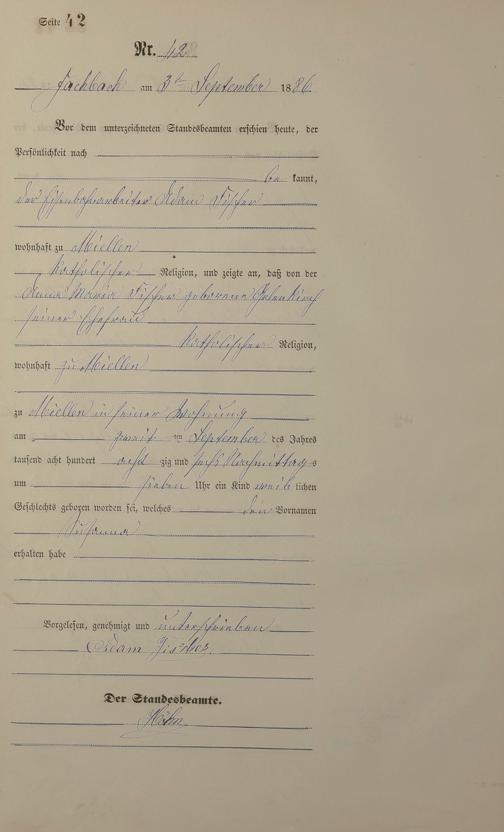 Seite 42
Nr. 42
Fachbach am 3ten September 1886
Vor dem unterzeichneten Standesbeamten erschien heute, der
Persönlichkeit nach
be kannt,
der Eisenbahnarbeiter Adam Fischer
wohnhaft zu Miellen
katholischer Religion, und zeigte an, daß von der
Anna Maria Fischer geborene
seiner Ehefrau
katholischer Religion,
wohnhaft zu Miellen
zu Miellen in seiner Wohnung
am zweiten September des Jahres
tausend acht hundert acht zig und sechs Nachmittags
um sieben Uhr ein Kind weib lichen
Geschlechts geboren worden sei, welches den Vornamen
Susanna
erhalten habe
Vorgelesen, genehmigt und unterschrieben
Adam Fischer.
Der Standesbeamte.
Höhn